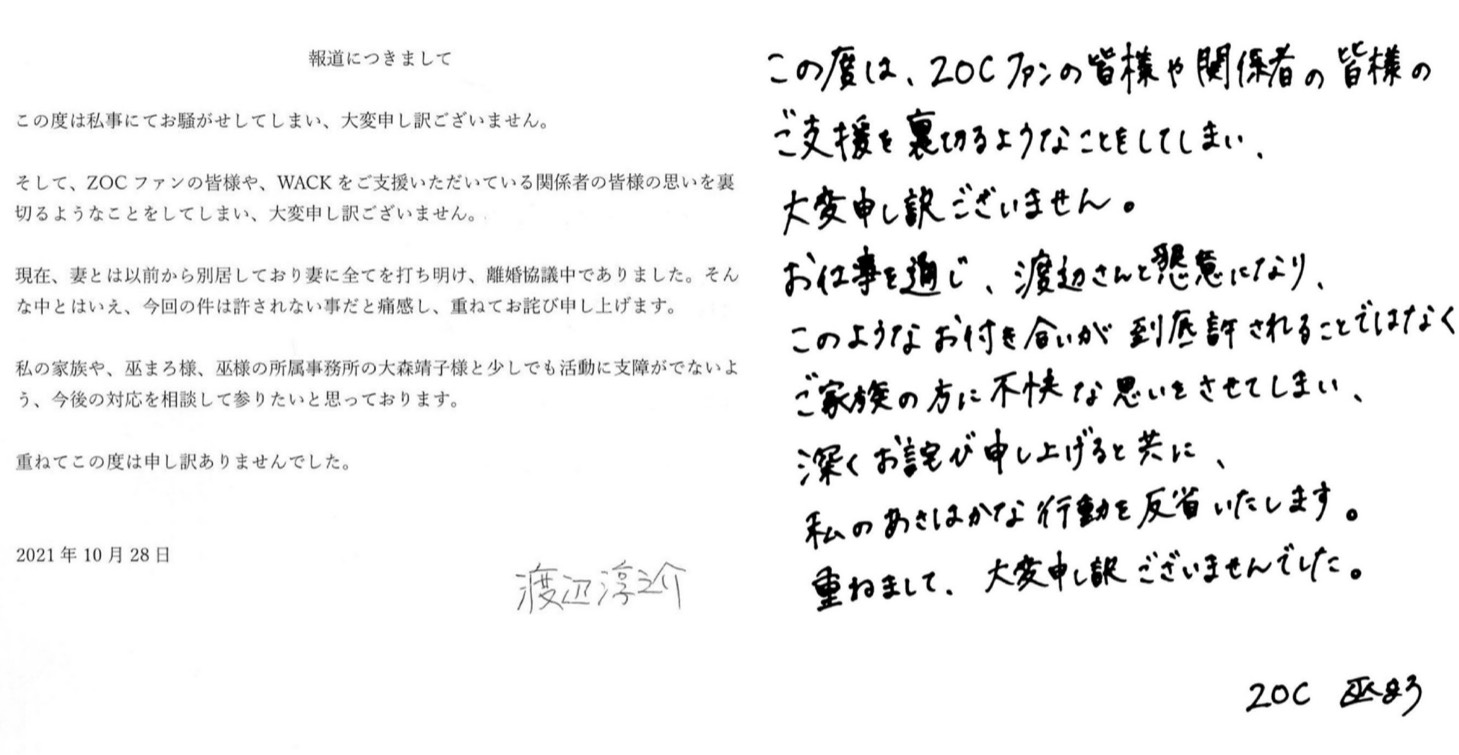 報道につきまして
この度は私事にてお騒がせしてしまい、大変申し訳ございません。
そして、ZOCファンの皆様や、WACKをご支援いただいている関係者の皆様の思いを裏
切るようなことをしてしまい、大変申し訳ございません。
現在、妻とは以前から別居しており妻に全てを打ち明け、離婚協議中でありました。そん
な中とはいえ、今回の件は許されない事だと痛感し、重ねてお詫び申し上げます。
私の家族や、巫まろ様、巫様の所属事務所の大森靖子様と少しでも活動に支障がでないよ
う、今後の対応を相談して参りたいと思っております。
重ねてこの度は申し訳ありませんでした。
2021年10月28日
渡辺淳之介
この度は、ZOCファンの皆様や関係者の皆様の
ご支援を裏切るようなことをしてしまい、
大変申し訳ございません。
お仕事を通じ、渡辺さんと懇意になり、
このようなお付き合いが到底許されることではなく
ご家族の方に不快な思いをさせてしまい、
深くお詫び申し上げると共に、
私のあさはかな行動を反省いたします。
重ねまして、大変申し訳ございませんでした。
ZOC 巫まろ